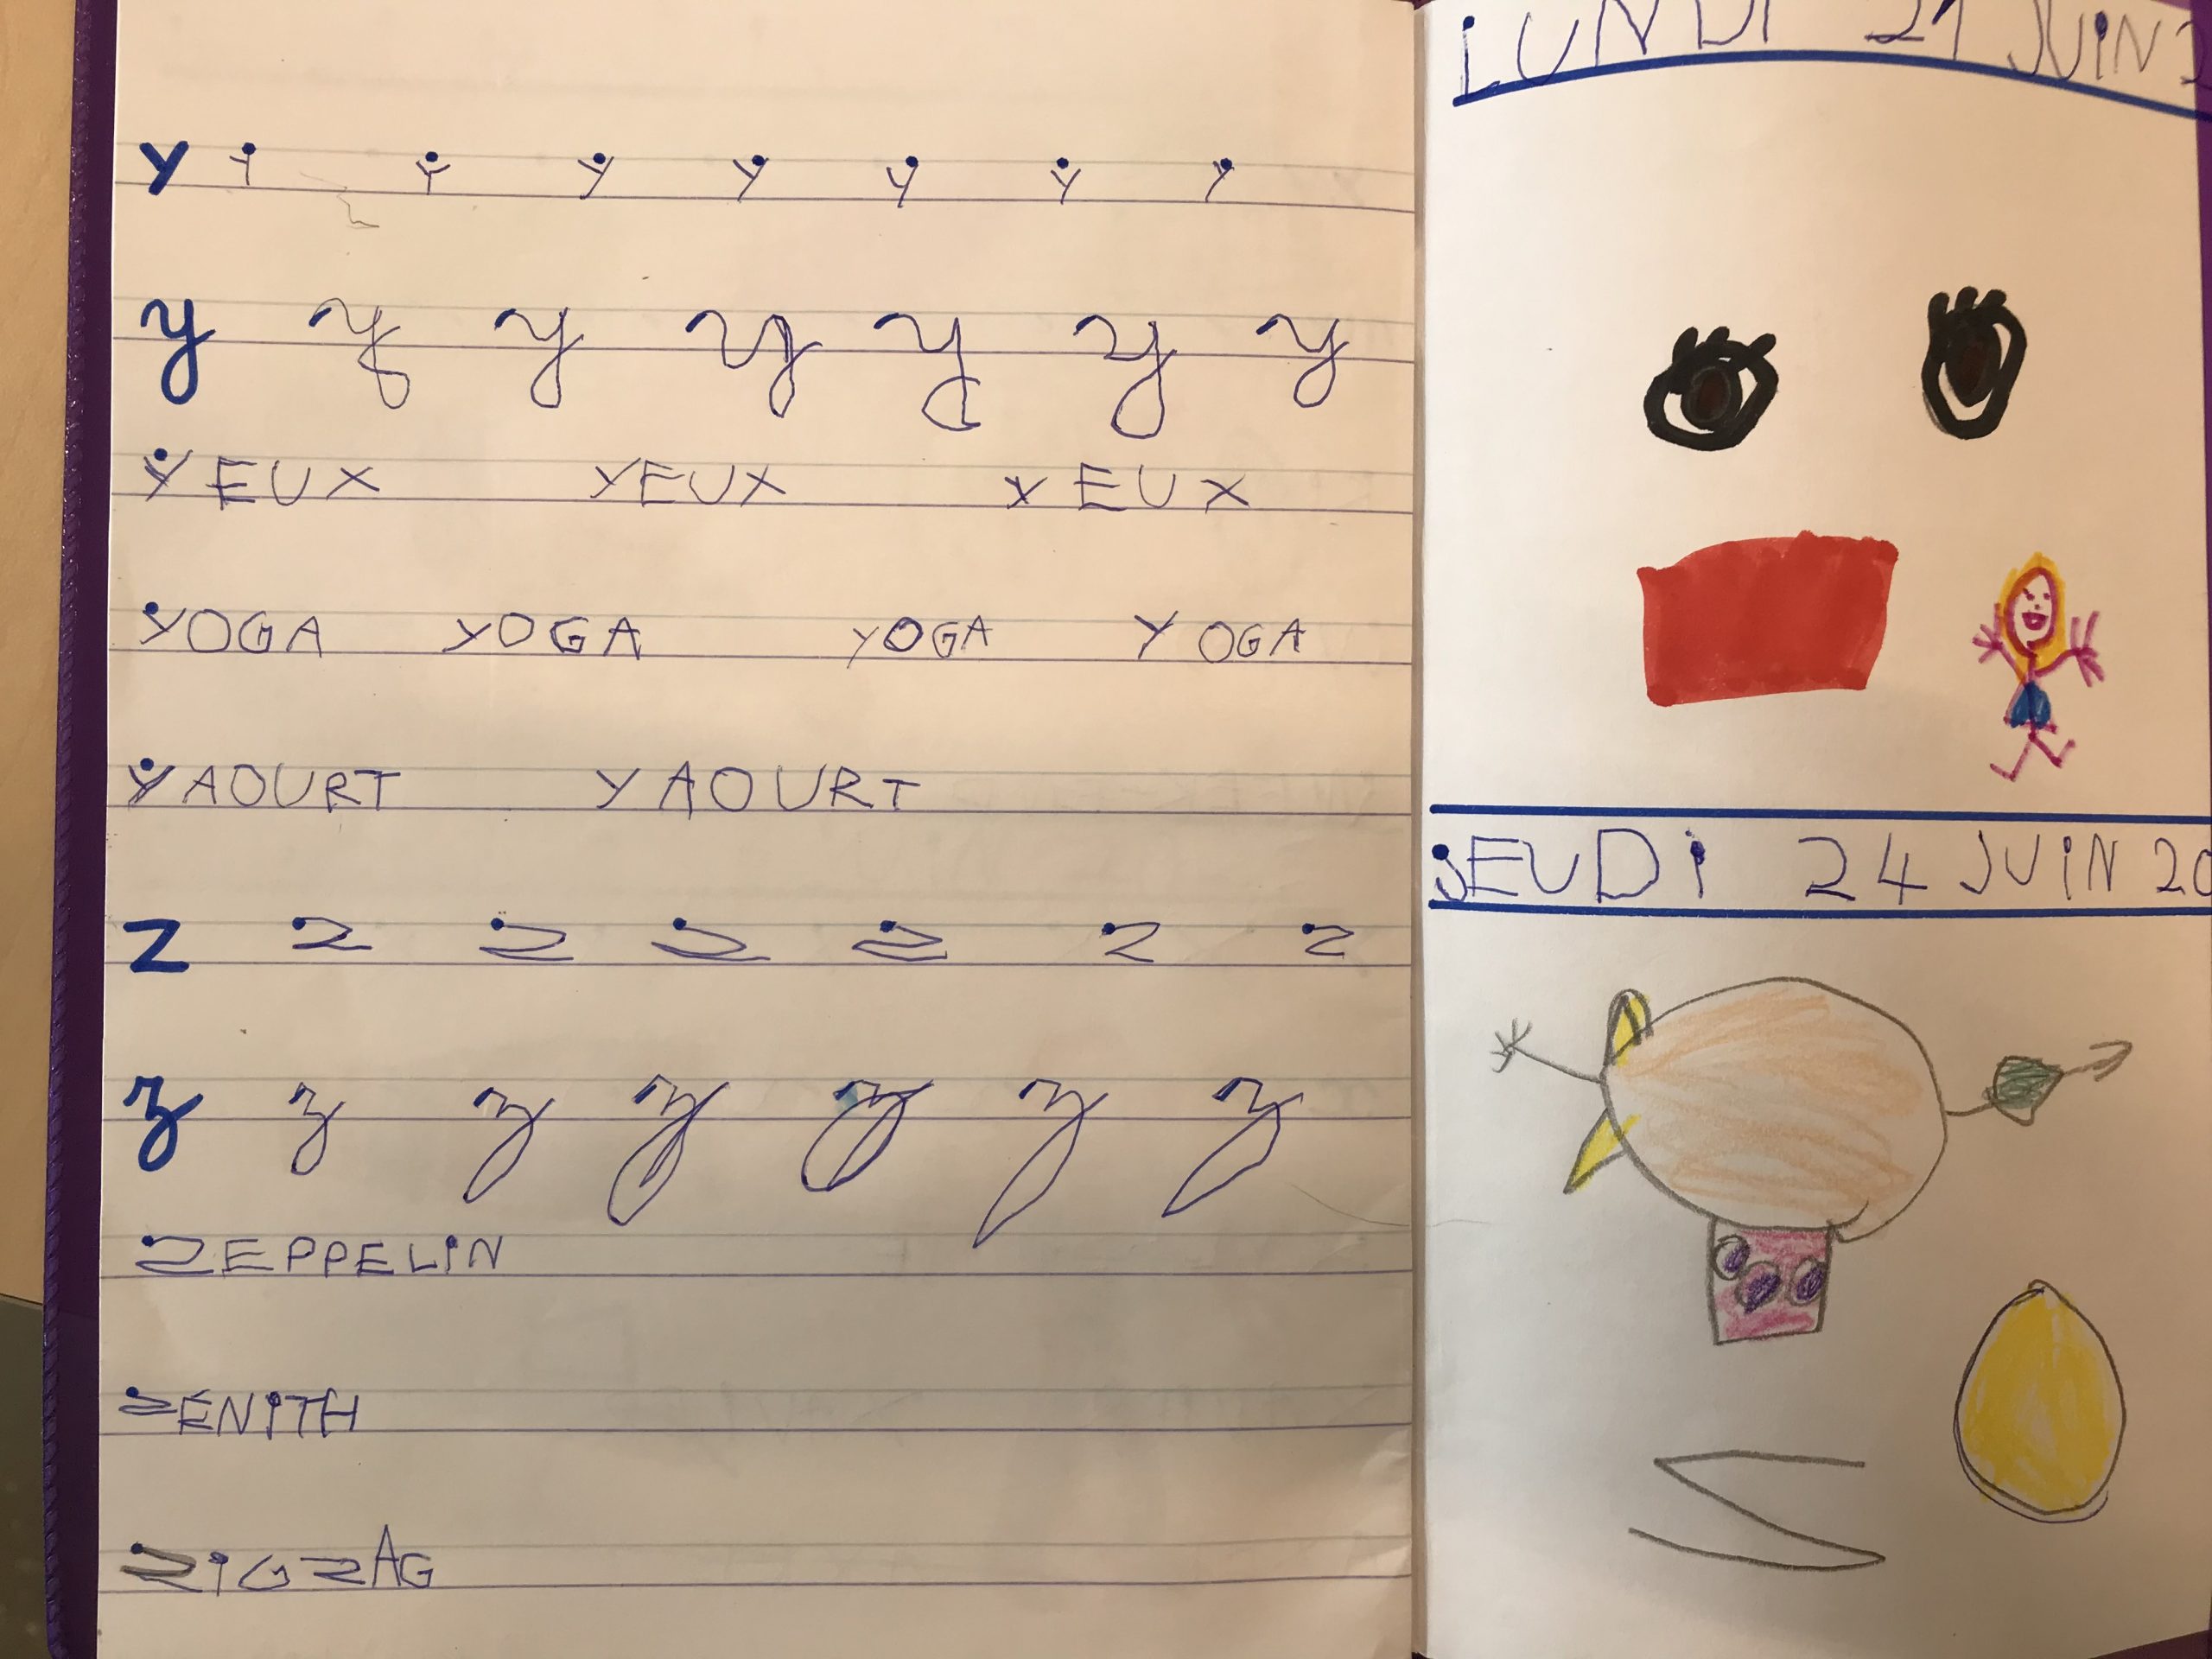 y y y y y y y y
y y y y y y y
YEUX YEUX YEUX
YOGA YOGA YOGA YOGA
YAOURT YAOURT
z z z z z z z
z z z z z z z
ZEPPELIN
ZÉNITH
ZIGZAG
LUNDI 21 JUIN
JEUDI 24 JUIN 20